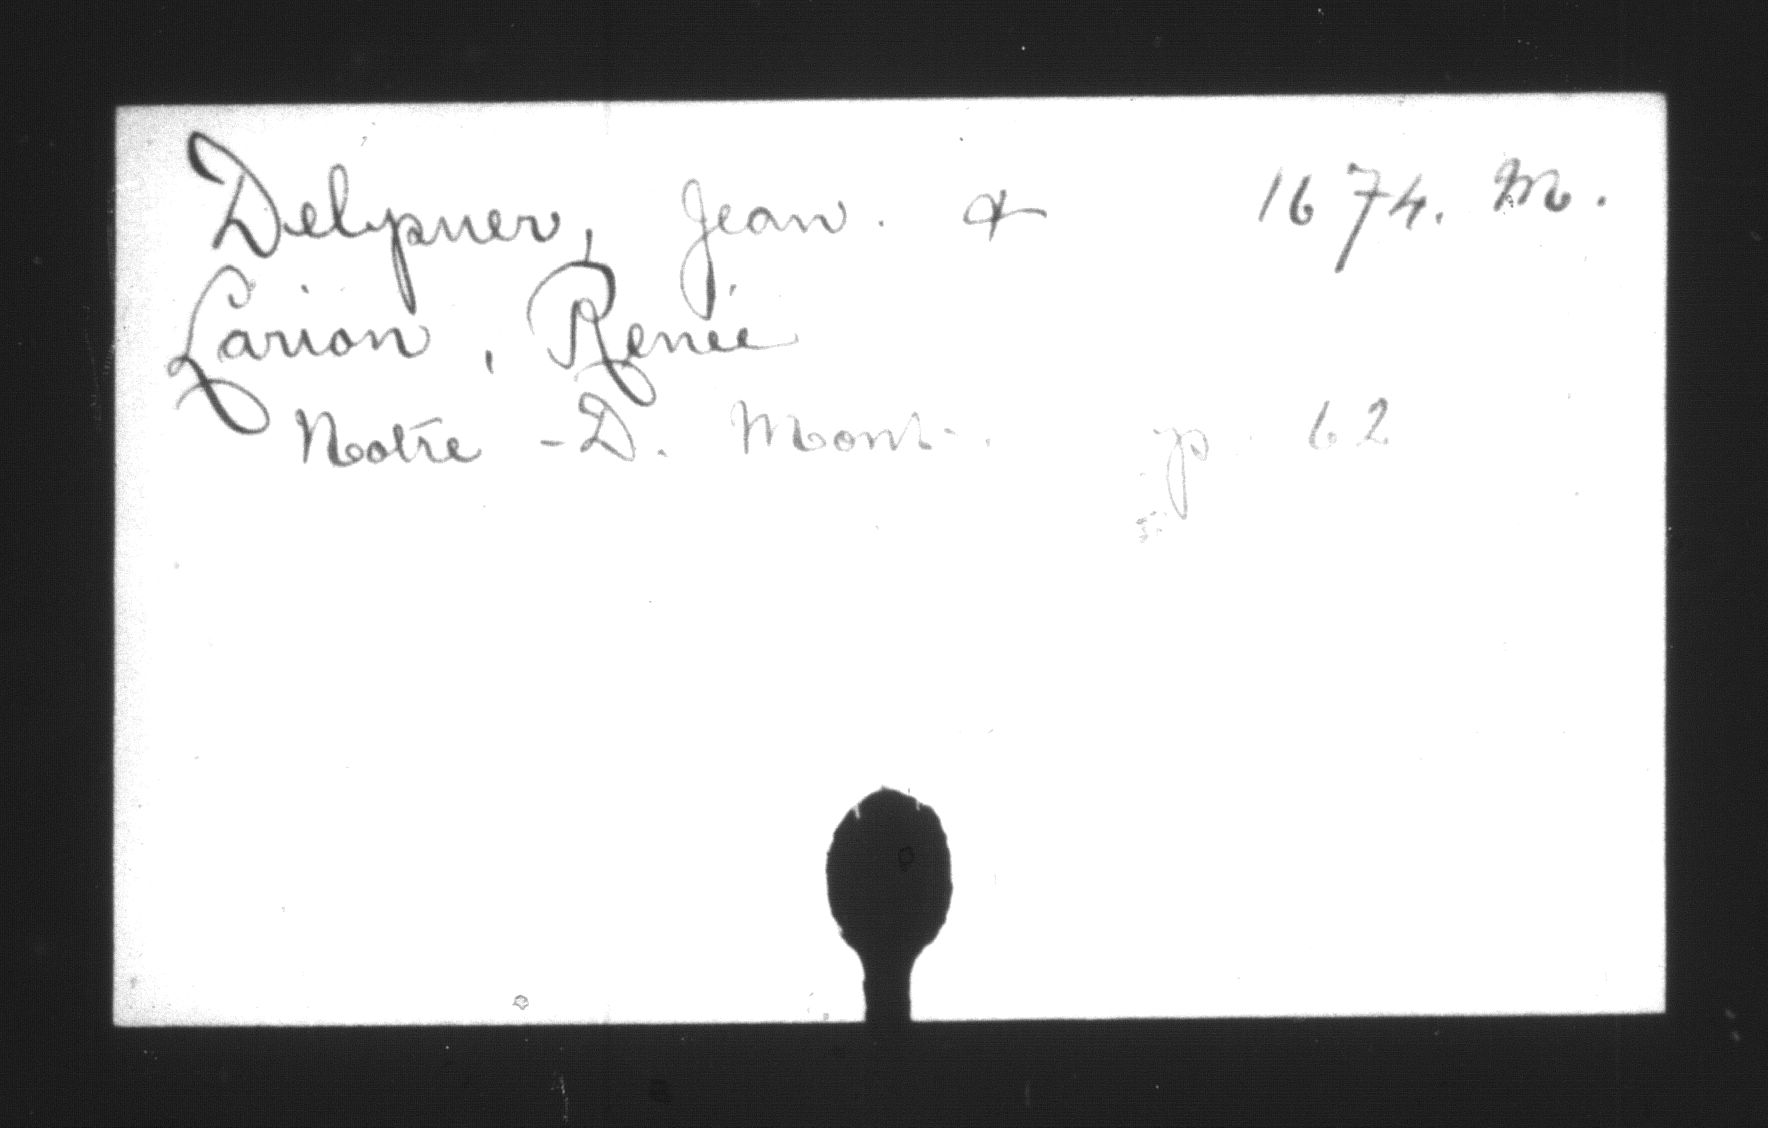 Delpuer, Jean. & 1674. M.
Larion, Renée
Notre - D. Mont. p. 62